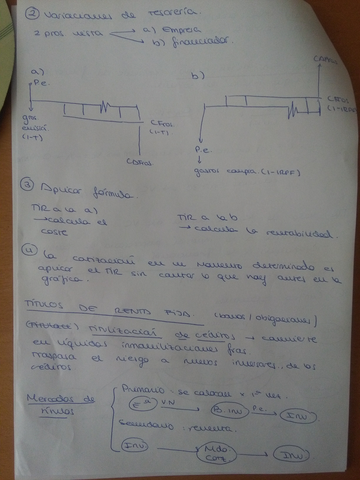 ② Variaciones de tesorería.
2 ptos vista → a) Empresa
→ b) financiador.
a)
b)
P.e.
gtos
(1-t)
(1-t)
P.e.
gastos compra (1-IRPF)
③ Aplicar fórmula
TIR a la a)
→ calcula el
coste
TIR a la b
→ calcula la rentabilidad.
④ La cotización en un momento determinado es
aplicar el TIR sin contar lo que hay antes en la
gráfica.
TÍTULOS DE RENTA FIJA (bonos/obligaciones)
titulización de créditos → convierte
en líquidos inmovilizaciones fras
traspasa el riesgo a nuevos inversores de los
créditos
Mercados de
títulos
Primario - se colocan x 1ª vez.
V.N
P.e.
Inv
Secundario - reventa.
Inv → Mdo → Inv